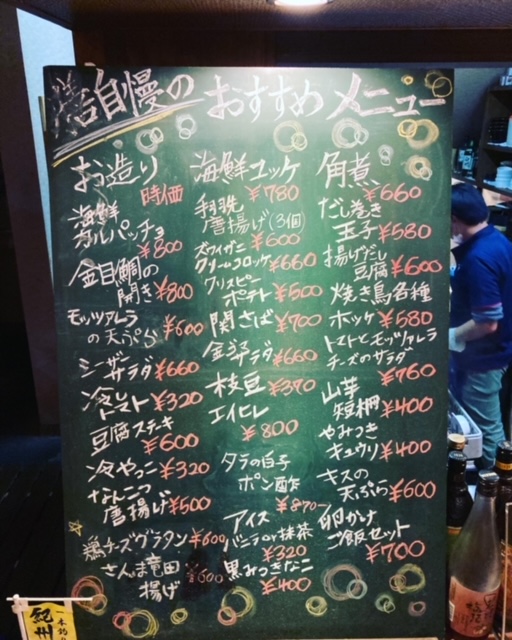 自慢の おすすめ メニュー
お造り
時価
海鮮
カルパッチョ
¥800
金目鯛の
開き ¥800
モッツァレラ
の天ぷら ¥600
シーザー
サラダ ¥660
冷し
トマト ¥320
豆腐ステキ
¥600
冷やっこ ¥320
なんこつ
唐揚げ ¥500
鶏チーズグラタン ¥600
さんま竜田
揚げ ¥600
海鮮ユッケ
¥780
手羽先
唐揚げ(3個)
¥600
ズワイガニ
クリームコロッケ ¥660
クリスピー
ポテト ¥500
関さば ¥700
サラダ ¥660
枝豆 ¥370
エイヒレ
¥800
タラの白子
ポン酢
¥870
アイス
バニラor抹茶
¥320
黒みつきなこ
¥400
角煮
¥660
だし巻き
玉子 ¥580
揚げだし
豆腐 ¥600
焼き鳥各種
ホッケ ¥580
トマトとモッツァレラ
チーズのサラダ
¥760
山芋
短冊 ¥400
やみつき
キュウリ ¥400
キスの
天ぷら ¥600
卵かけ
ご飯セット
¥700
一本釣り
紀州